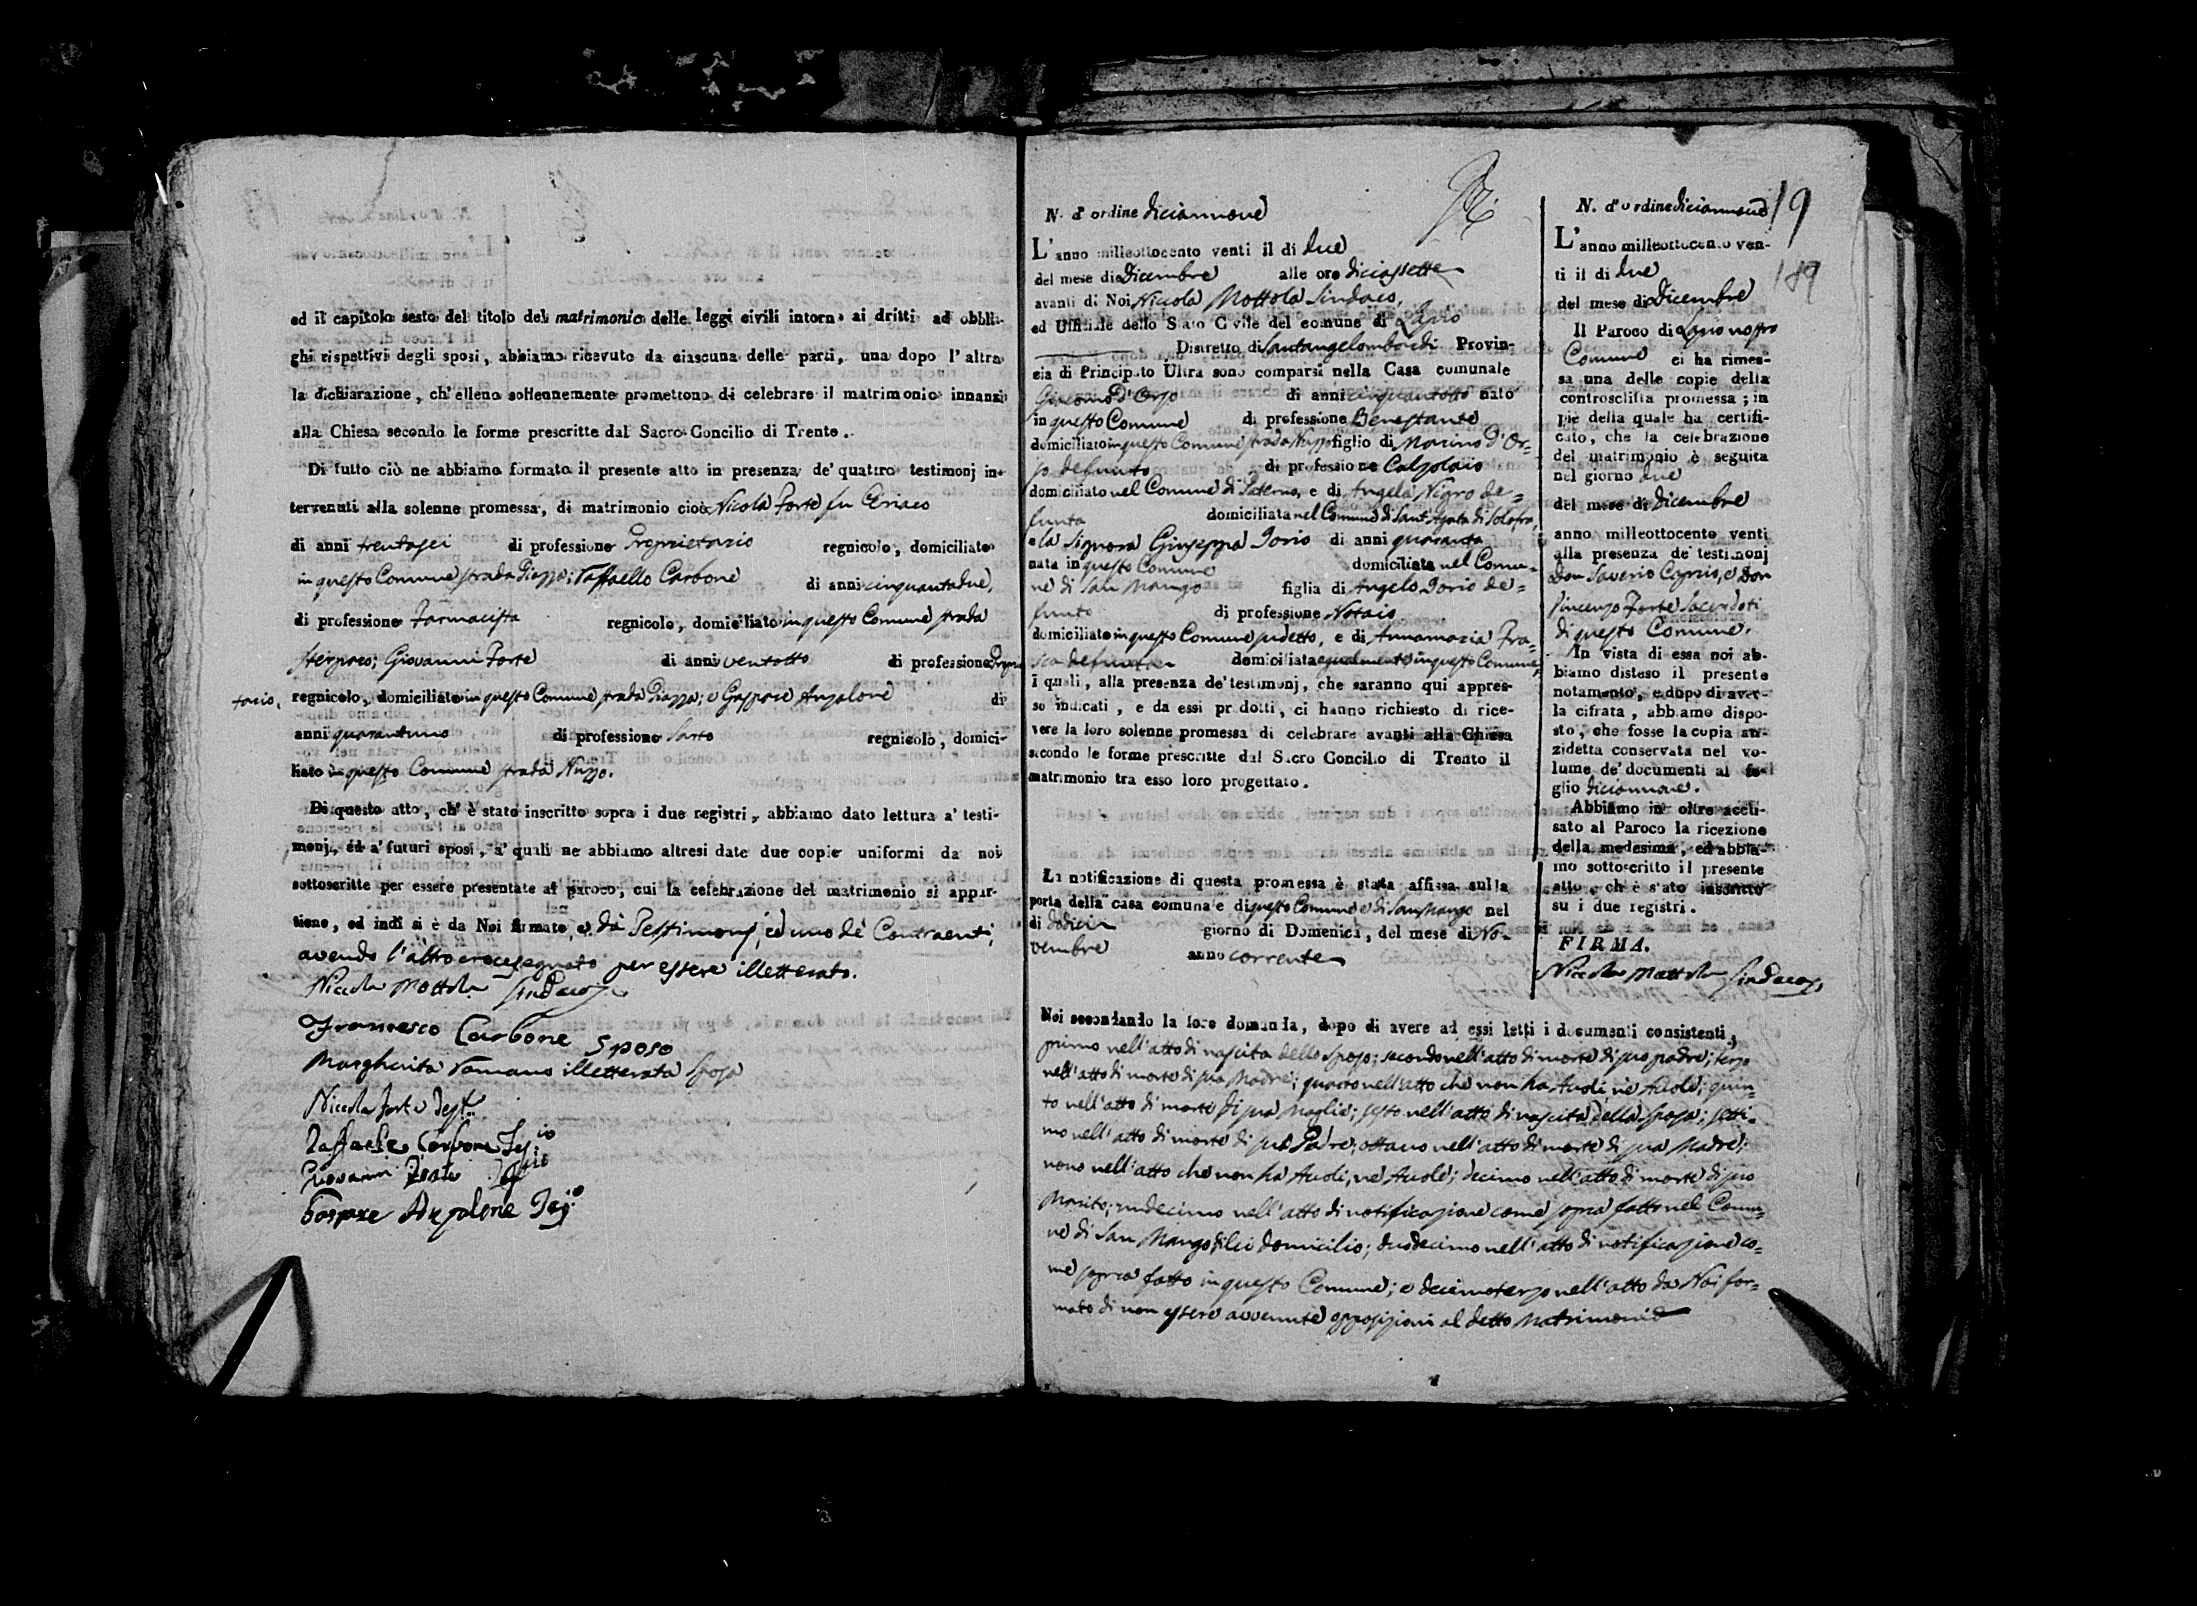 ed il capitolo sesto del titolo del matrimonio delle leggi civili intorno ai dritti ad obbli-
ghi rispettivi degli sposi, abbiamo ricevuto da ciascuna delle parti, una dopo l'altra
la dichiarazione, ch'elleno sollennemente promettono di celebrare il matrimonio innanzi
alla Chiesa secondo le forme prescritte dal Sacro Concilio di Trento.
Di tutto ciò ne abbiamo formato il presente atto in presenza de' quattro testimonj in-
tervenuti alla solenne promessa, di matrimonio cioè Nicola Forte fu Ciriaco
di anni trentasei di professione Proprietario regnicolo, domiciliato
in questo Comune strada Piazza; Raffaello Carbone di anni cinquantadue,
di professione Farmacista regnicolo, domiciliato in questo Comune strada
Giovanni Forte di anni ventotto di professione Proprie
tario, regnicolo, domiciliato in questo Comune strada Piazza; e Gaspare Anzalone di
anni quarantuno di professione Sarto regnicolo, domici-
liato in questo Comune strada Nuzzo.
Di questo atto, ch'è stato inscritto sopra i due registri, abbiamo dato lettura a' testi-
monj, ed a' futuri sposi, a' quali ne abbiamo altresi date due copie uniformi da noi
sottoscritte per essere presentate al paroco, cui la celebrazione del matrimonio si appar-
tiene, ed indi si è da Noi firmato, e da Testimonj, ed uno de' Contraenti,
avendo l'altro crocesegnato per essere illetterato.
Nicola Mottola Sindaco
Francesco Carbone Sposo
Margherita Romano illetterata Sposa
Nicola Forte Test.
Raffaele Carbone Tes.io
Giovanni Forte
Gaspare Anzalone Tes.o
N. d'ordine diciannove
L'anno milleottocento venti il di due
del mese di Dicembre alle ore diciassette
avanti di Noi Nicola Mottola Sindaco,
ed Uffiziale dello Stato Civile del comune di Lapio
Distretto di Santangelombardi Provin-
cia di Principato Ultra sono comparsi nella Casa comunale
Giacomo D'Orso di anni cinquantotto nato
in questo Comune di professione Benestante
domiciliato in questo Comune strada Nuzzo figlio di Marino D'Or-
so defunto di professione Calzolaio
domiciliato nel Comune di Paterno, e di Angela Nigro de=
funta domiciliata nel Comune di Sant'Agata di Solofra,
e la Signora Giuseppa Iorio di anni quaranta
nata in questo Comune domiciliata nel Comu-
ne di San Mango figlia di Angelo Iorio de=
funto di professione Notaio
domiciliato in questo Comune sudetto, e di Annamaria Fra-
sca defunta domiciliata egualmente in questo Comune
i quali, alla presenza de' testimonj, che saranno qui appres-
so indicati, e da essi prodotti, ci hanno richiesto di rice-
vere la loro solenne promessa di celebrare avanti alla Chiesa
secondo le forme prescritte dal Sacro Concilio di Trento il
matrimonio tra esso loro progettato.
La notificazione di questa promessa è stata affissa sulla
porta della casa comunale di questo Comune e di San Mango nel
di dodici giorno di Domenica, del mese di No-
vembre anno corrente
Noi secondando la loro domanda, dopo di avere ad essi letti i documenti consistenti,
primo nell'atto di nascita dello Sposo; secondo nell'atto di morte di suo padre; terzo
nell'atto di morte di sua Madre; quarto nell'atto che non ha Avoli, ne Avole; quin-
to nell'atto di morte di sua Moglie; sesto nell'atto di nascita della Sposa; setti-
mo nell'atto di morte di suo Padre; ottavo nell'atto di morte di sua Madre;
nono nell'atto che non ha Avoli, ne Avole; decimo nell'atto di morte di suo
Marito; undecimo nell'atto di notificazione come sopra fatto nel Comu=
ne di San Mango di lei domicilio; duodecimo nell'atto di notificazione co=
me sopra fatto in questo Comune; e decimoterzo nell'atto da Noi for=
mato di non essere avvenute opposizioni al detto Matrimonio
N. d'ordine diciannove 19
L'anno milleottocento ven-
ti il di due 189
del mese di Dicembre
Il Paroco di Lapio nostro
Comune ci ha rimes-
sa una delle copie della
controscritta promessa; in
piè della quale ha certifi-
cato, che la celebrazione
del matrimonio è seguita
nel giorno due
del mese di Dicembre
anno milleottocento venti
alla presenza de' testimonj
Don Saverio Caprio, e Don
Vincenzo Forte Sacerdoti
di questo Comune.
In vista di essa noi ab-
biamo disteso il presente
notamento, e dopo di aver-
la cifrata, abbiamo dispo-
sto, che fosse la copia an-
zidetta conservata nel vo-
lume de' documenti al fo-
glio diciannove.
Abbiamo in oltre accu-
sato al Paroco la ricezione
della medesima, ed abbia-
mo sottoscritto il presente
atto, ch'è stato inscritto
su i due registri.
FIRMA.
Nicola Mottola Sindaco